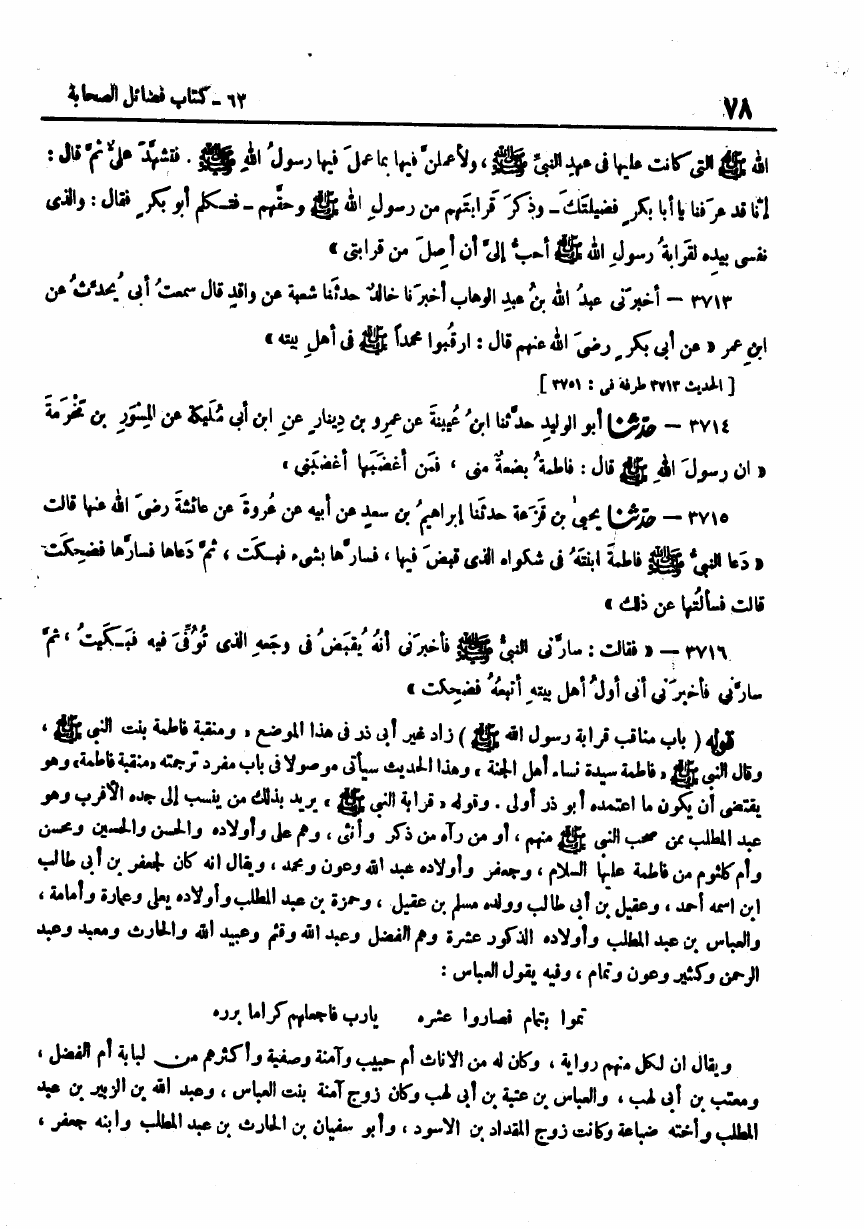 ٧٨
٦٣ - كتاب فضائل الصحابة
الله ﷺ التى كانت عليها فى عهدِ النبىِّ ﷺ ، ولأعملنَّ فيها بما عملَ فيها رسولُ اللهِ ﷺ . فتشهَّدَ علىٌّ ثمَّ قال :
إنّا قد عرَفنا يا أبا بكرٍ فضيلتَكَ - وذكرَ قَرابتَهم من رسولِ الله ﷺ وحقَّهم - فتكلم أبو بكرٍ فقال : والذى
نفسى بيدِه لقَرابةُ رسولِ الله ﷺ أحبُّ إلىَّ أن أصِلَ من قرابتى »
٣٧١٣ – أخبرَنى عبدُ الله بنُ عبدِ الوهاب أخبرَنا خالدٌ حدثَنا شعبة عن واقدٍ قال سمعتُ أبى يُحدِّثُ عن
ابنِ عمر « عن أبى بكرٍ رضىَ الله عنهم قال : ارقُبوا محمداً ﷺ فى أهلِ بيته »
[ الحديث ٣٧١٣ طرفه فى : ٣٧٥١ ]
٣٧١٤ – حدّثنا أبو الوليدِ حدَّثنا ابنُ عُيينةَ عن عمرِو بن دِينارٍ عنِ ابن أبى مُلَيكة عن المِسْوَرِ بن مَخْرَمةَ
« ان رسولَ اللهِ ﷺ قال : فاطمةُ بَضعةٌ منى ، فمَن أغضَبَها أغضَبَنى »
٣٧١٥ – حدّثنا يحيىٰ بن قَزَعة حدثَنا إبراهيمُ بن سعدٍ عن أبيه عن عُروةَ عن عائشةَ رضىَ الله عنها قالت
« دَعا النبىُّ ﷺ فاطمةَ ابنتَهُ فى شكواه الذى قبضَ فيها ، فسارَّها بشىء فبكَت ، ثمَّ دَعاها فسارَّها فضحِكَت
قالت فسألتُها عن ذلك »
٣٧١٦ – « فقالت : سارَّنى النبىُّ ﷺ فأخبرَنى أنهُ يُقبَضُ فى وجَعهِ الذى تُوُفِّىَ فيه فبَكَيتُ ، ثمَّ
سارَّنى فأخبرَنى أنى أولُ أهل بيتهِ أتبعُهُ فضحِكت »
قوله ( باب مناقب قرابة رسول الله ﷺ ) زاد غير أبى ذر فى هذا الموضع « ومنقبة فاطمة بنت النبى ﷺ ،
وقال النبى ﷺ « فاطمة سيدة نساء أهل الجنة » وهذا الحديث سيأتى موصولا فى باب مفرد ترجمته «منقبة فاطمة» وهو
يقتضى أن يكون ما اعتمده أبو ذر أولى . وقوله « قرابة النبى ﷺ » يريد بذلك من ينسب إلى جده الأقرب وهو
عبد المطلب ممن صحب النبى ﷺ منهم ، أو من رآه من ذكر وأنثى ، وهم على وأولاده والحسن والحسين ومحسن
وأم كلثوم من فاطمة عليها السلام ، وجعفر وأولاده عبد الله وعون ومحمد ، ويقال انه كان لجعفر بن أبى طالب
ابن اسمه أحمد ، وعقيل بن أبى طالب وولده مسلم بن عقيل ، وحمزة بن عبد المطلب وأولاده يعلى وعمارة وأمامة ،
والعباس بن عبد المطلب وأولاده الذكور عشرة وهم الفضل وعبد الله وقثم وعبيد الله والحارث ومعبد وعبد
الرحمن وكثير وعون وتمام ، وفيه يقول العباس :
تموا بتمام فصاروا عشره يارب فاجعلهم كراما برره
ويقال ان لكل منهم رواية ، وكان له من الاناث أم حبيب وآمنة وصفية وأكثرهم من لبابة أم الفضل ،
ومعتب بن أبى لهب ، والعباس بن عتبة بن أبى لهب وكان زوج آمنة بنت العباس ، وعبد الله بن الزبير بن عبد
المطلب وأخته ضباعة وكانت زوج المقداد بن الاسود ، وأبو سفيان بن الحارث بن عبد المطلب وابنه جعفر ،